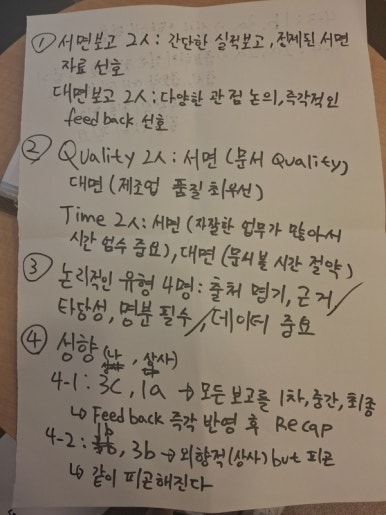 ① 서면보고 2人: 간단한 실적보고, 정제된 서면
자료 선호
대면보고 2人: 다양한 관점 논의, 즉각적인
feedback 선호
② Quality 2人: 서면 (문서 Quality)
대면 (제조업 품질 최우선)
Time 2人: 서면 (자잘한 업무가 많아서
시간 엄수 중요), 대면 (문서볼 시간 절약)
③ 논리적인 유형 4명: 출처 명기, 근거/
타당성, 명분 필수/, 데이터 중요
④ 성향 (나, 상사)
4-1: 3C, 1a → 모든 보고를 1차, 중간, 최종
↳ Feedback 즉각 반영 후 Recap
4-2: 1b, 3b → 외향적(상사) but 피곤
↳ 같이 피곤해진다